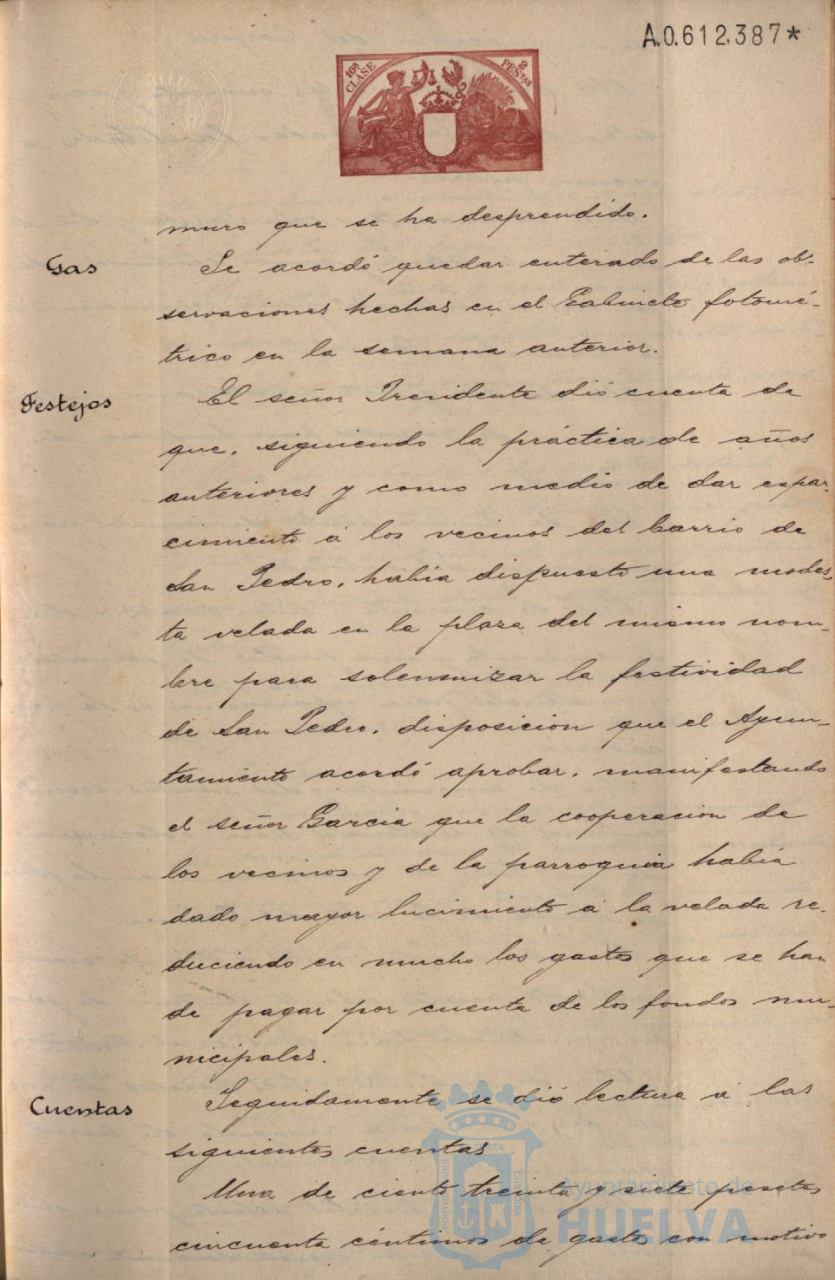 A.0.612,387*
10ª CLASE
2 PESTAS
muro que se ha desprendido.
Gas
Se acordó quedar enterado de las ob-
servaciones hechas en el Gabinete fotomé-
trico en la semana anterior.
Festejos
El señor Presidente dió cuenta de
que, siguiendo la práctica de años
anteriores y como medio de dar espar-
cimiento á los vecinos del barrio de
San Pedro, había dispuesto una modes-
ta velada en la plaza del mismo nom-
bre para solemnizar la festividad
de San Pedro, disposicion que el Ayun-
tamiento acordó aprobar, manifestando
el señor Garcia que la cooperacion de
los vecinos y de la parroquia había
dado mayor lucimiento á la velada re-
duciendo en mucho los gastos que se han
de pagar por cuenta de los fondos mu-
nicipales.
Cuentas
Seguidamente se dió lectura á las
siguientes cuentas
Una de ciento treinta y siete pesetas
cincuenta céntimos de gastos con motivo
Ayuntamiento de
HUELVA